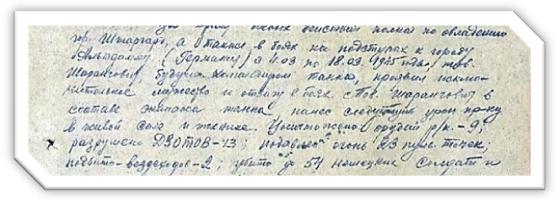 боевых действий полка по овладению
гор. Штаргард, а также в боях на подступах к городу
Альтдамм (Германия) с 4.03 по 18.03 1945 года, тов.
Шадангович будучи командиром танка, проявил исклю-
чительное мужество и отвагу в боях. Тов. Шадангович в
составе экипажа танка нанес следующий урон пр-ку
в живой силе и технике. Уничтожено орудий р/к. - 9;
разрушено ДЗОТОВ-13; подавлен огонь 23 пулем. точек;
подбито вездеходов-2; убито до 54 немецких солдат и